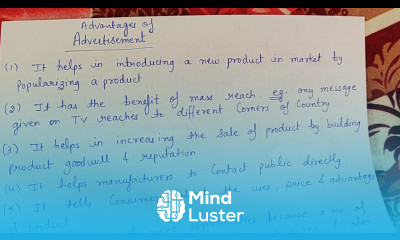 Advantages of
Advertisement
(1) It helps in introducing a new product in market by
Popularizing a product
(2) It has the benefit of mass reach. eg. any message
given on TV reaches to different Corners of Country
(3) It helps in increasing the Sale of product by building
Product goodwill & reputation
(4) It helps manufacturers to Contact public directly
(5) It tells Consumer the use, price & advantages
of product
because a no. of
Mind
Luster